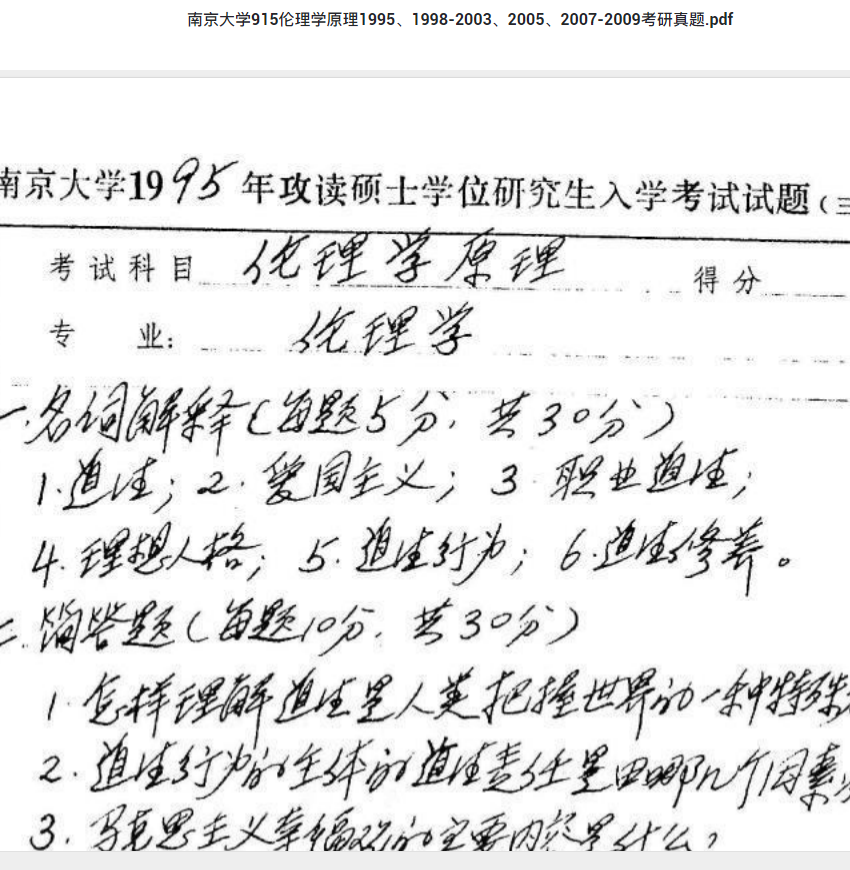 南京大学915伦理学原理1995、1998-2003、2005、2007-2009考研真题.pdf
南京大学1995年攻读硕士学位研究生入学考试试题（三
考试科目 伦理学原理 得分
专 业： 伦理学
一.名词解释（每题5分，共30分）
1.道德；2.爱国主义；3.职业道德；
4.理想人格；5.道德行为；6.道德修养。
二.简答题（每题10分，共30分）
1.怎样理解道德是人类把握世界的一种特殊
2.道德行为的主体的道德责任是由哪几个因素
3.马克思主义幸福观的主要内容是什么？